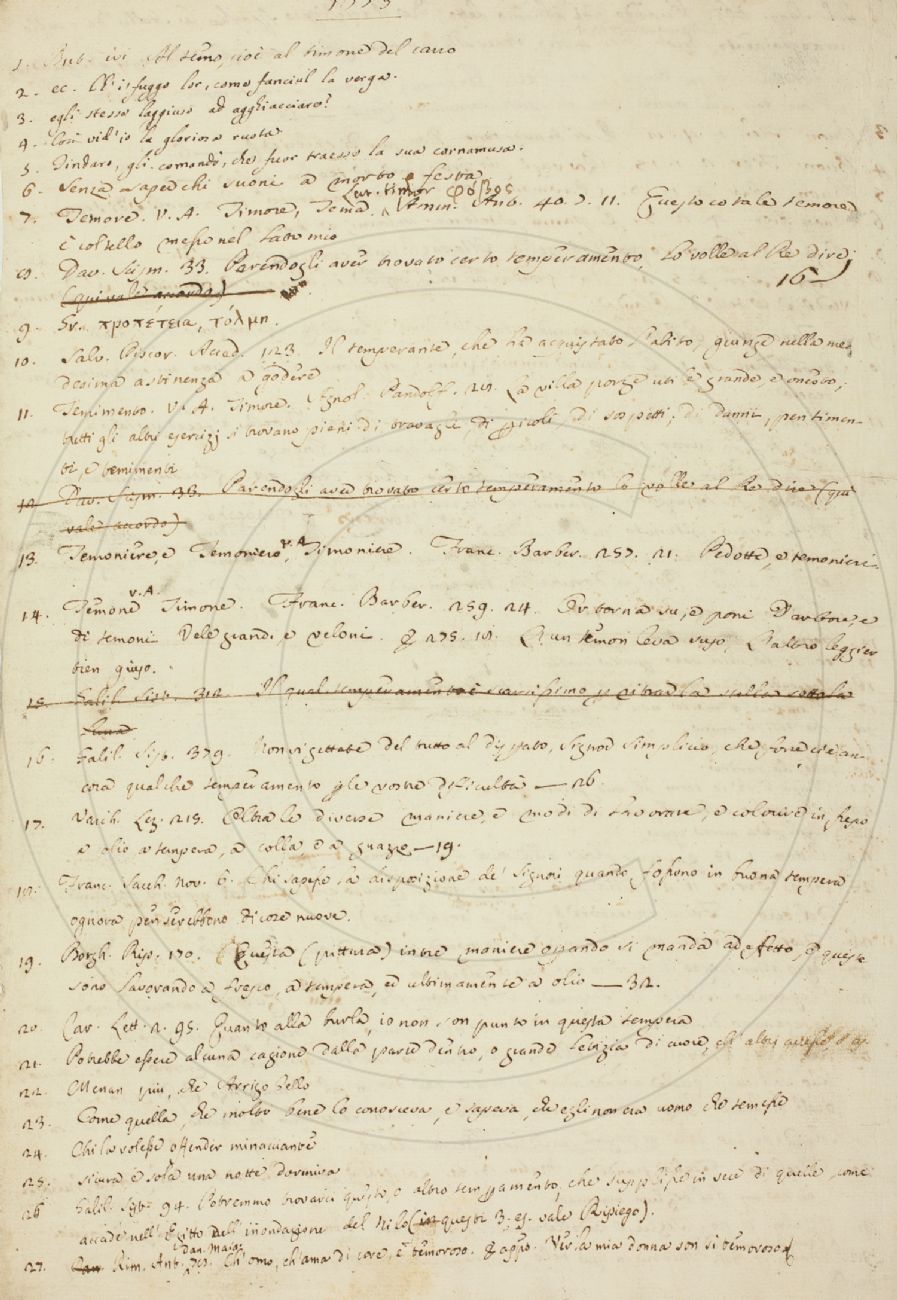 1. But. ivi Al temo, cioè al timone del carro
2. ec. lor, come fanciul la verga.
3. egli stesso laggiuso ad agghiacciare?
4. Così vid'io la gloriosa ruota
5. Tindaro, gli comandò, che fuor traesse la sua cornamusa.
6. Senza saper chi suoni a morto o festa
7. Temore. V. A. Timore, Tema. Lat. timor φόβος Rim. Ant. 40. 11. Questo cotale temore
è coltello messe nel lato mio
8. Dav. Scism. 33. Parendogli aver trovato certo temperamento, lo volle al Re dire;
(qui vale accordo) 16
9. Gr. προπέτεια, τόλμη.
10. Salv. Discor. Accad. 123. Il temperante, che ha acquistato l'abito, giunge nella me-
desima astinenza a godere
11. Temimento. V. A. Timore. Agnol. Pandolf. La villa porge utile grande, e onesto;
tutti gli altri esercizj si trovano pieni di travagli, di pericoli di sospetti, di danni, pentimen-
ti, e temimenti
12. Dav. Scism. 33. Parendogli aver trovato certo temperamento lo volle al Re dire (qui
vale accordo)
13. Temoniere, e Temoniero v. A. Timoniere. Franc. Barber. 257. 21. Pedotte, e temonieri
14. Temone v. A. Timone. Franc. Barber. 259. 24. Er torna su, e poni D'arbore, e
di temoni Vele grandi, e veloni. E 275. L'un temon leva suso, L'altro leggier
bien giuso.
15. Galil. Sist. 312. Il qual temperamento è scarsissimo per ritrar la stella sotto la
Luna
16. Galil. Sist. 379. Non vi gettate del tutto al disperato, Signor Simplicio, che forse ci è an-
cora qualche temperamento per le vostre difficultà — 26.
17. Varch. Lez. 218. Oltra le diverse maniere, e modi di lavorare, e colorire in fresco
a olio a tempera, a colla e a guazzo — 19.
18. Franc. Sacch. Nov. 6. Chi sapesse la disposizione de' Signori quando fossono in buona tempera
ognora penserebbono di cose nuove.
19. Borgh. Rip. 170. Questa (pittura) in tre maniere operando si manda ad effetto, e queste
sono lavorando a fresco, a tempera, ed ultimamente a olio — 32.
20. Car. Lett. 2. 95. Quanto alla burla, io non son punto in questa tempera
21. Potrebbe essere alcuna cagione dalla parte dentro, o grande letizia di cuore,
22. Menan più, che Arrigo bello
23. Come quella, che molto bene lo conosceva, e sapeva, che egli non era uomo che temesse
24. Chi la volesse offender minacciante
25. sicura e sola una notte dormiva
26 Galil. Sist. 94. Potremmo trovarci questo, o altro temperamento, che supplisse in vece di quelle, come
accade nell' Egitto dell' inondazione del Nilo (in questi 3. es. vale Ripiego).
27. Rim. Ant. Dan. Maian. Ch'omo, ch'ama di core, è temoroso. E appr. Ver la mia donna son sì temoroso